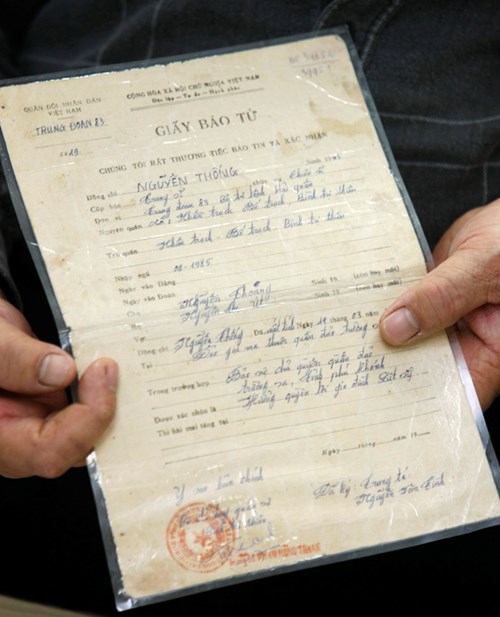 QUÂN ĐỘI NHÂN DÂN
VIỆT NAM
TRUNG ĐOÀN 83
CỘNG HÒA XÃ HỘI CHỦ NGHĨA VIỆT NAM
Độc lập — Tự do — Hạnh phúc
GIẤY BÁO TỬ
CHÚNG TÔI RẤT THƯƠNG TIẾC BÁO TIN VÀ XÁC NHẬN
Đồng chí NGUYỄN THỐNG Sinh
Cấp bậc Trung sĩ
Đơn vị Trung đoàn 83. Bộ tư lệnh Hải quân
Nguyên quán Khắc trạch Bố trạch. Bình trị thiên
Trú quán Khắc trạch. Bố trạch. Bình trị thiên
Nhập ngũ 1985
Ngày vào Đảng
Ngày vào Đoàn
Nguyễn Sinh 19 (còn hay mất)
Sinh 19 (còn hay mất)
Vợ
Đồng chí Nguyễn Thống Đã mất tích Ngày 14 03 năm
Tại Đảo gạc ma thuộc quần đảo trường
Trong trường hợp Bảo vệ chủ quyền quần đảo
trường sa, tỉnh phú khánh
Hưởng quyền lợi gia đình Liệt sỹ
Được xác nhận là
Thi hài mai táng tại
Ngày tháng năm 19
Y sao bản chính
Đã ký: Trung tá
Nguyễn